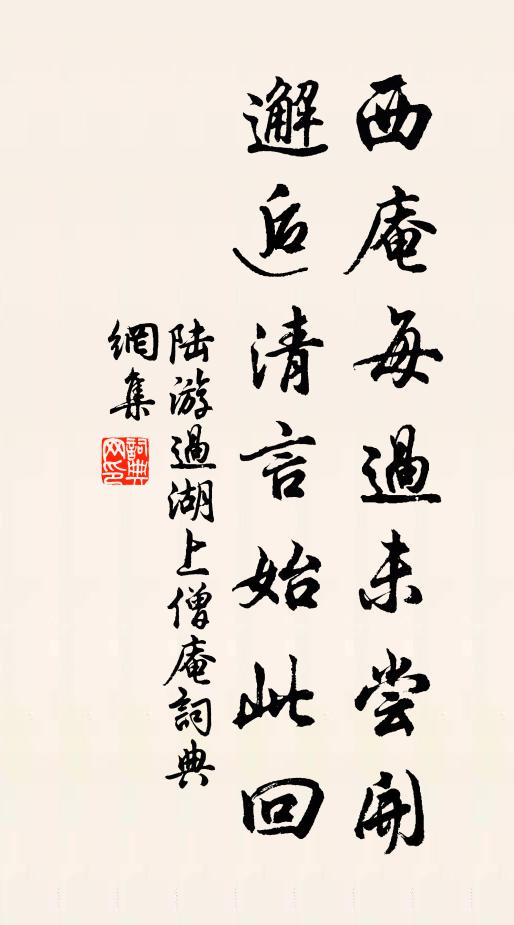 西庵每過未尝開
邂逅清言始此回
陆游過湖上僧庵詞典
網集
詞典网印